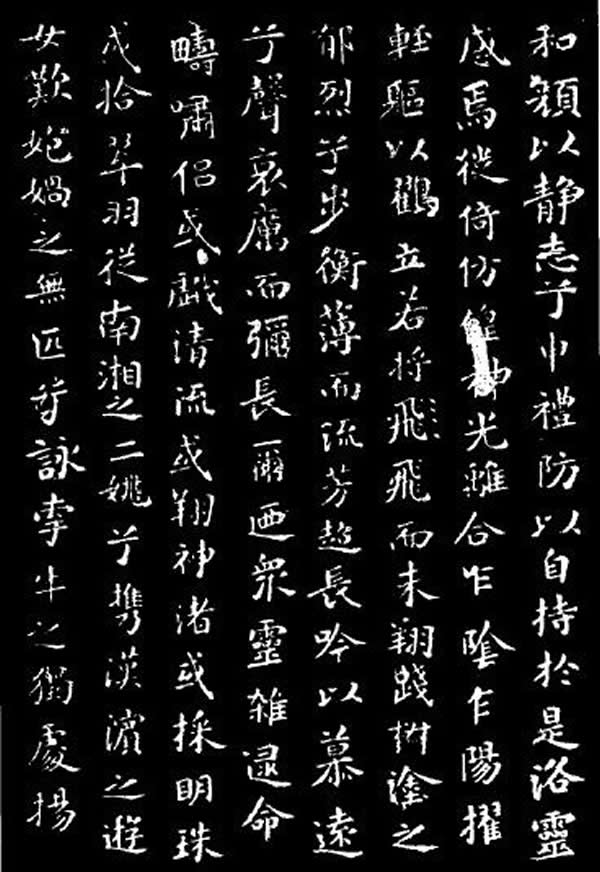 和顏以静志兮申禮防以自持於是洛靈
感焉徙倚仿偟神光離合乍陰乍陽擢
輕軀以鶴立若將飛飛而未翔踐椒塗之
郁烈兮步衡薄而流芳超長吟以慕遠
兮聲哀厲而彌長爾迺衆靈雜遝命
疇嘯侶或戲清流或翔神渚或採明珠
或拾翠羽從南湘之二姚兮携漢濱之遊
女歎媧之無匹兮詠牽牛之獨處揚